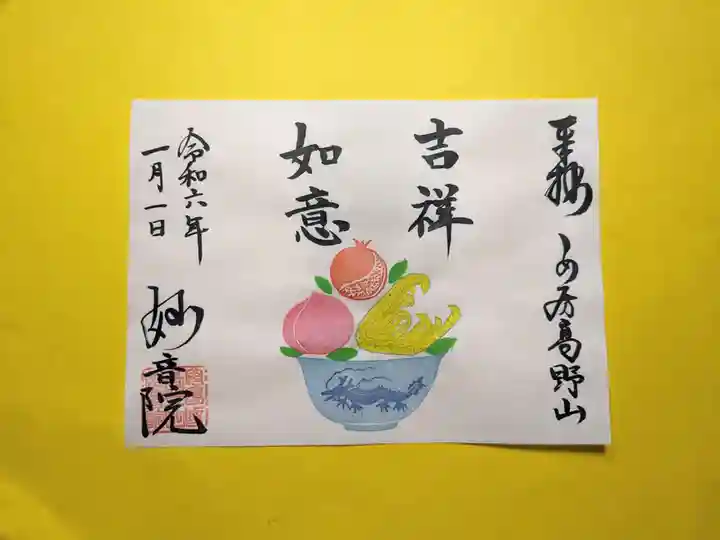 奉拝
の房高野山
吉祥
如意
令和六年
一月一日
妙音院